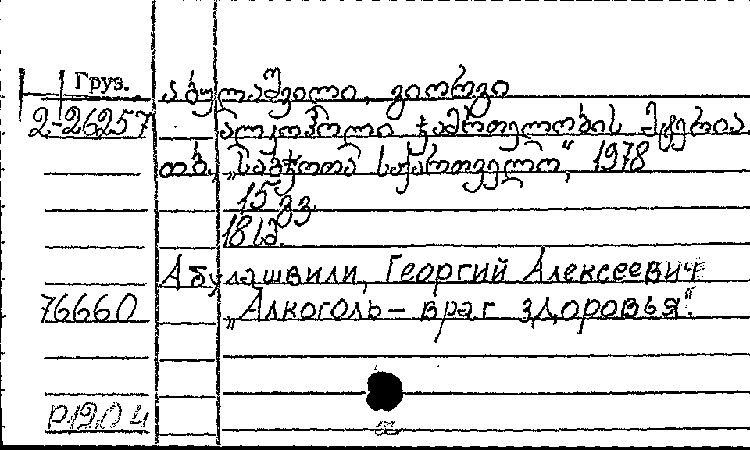 Груз.
აბულაშვილი, გიორგი
2-26257 ალკოჰოლი ჯანმრთელობის მტერია
თბ., „საბჭოთა საქართველო“, 1978
15 გვ.
18 სმ.
Абулашвили, Георгий Алексеевич
76660 „Алкоголь – враг здоровья“.
р1904